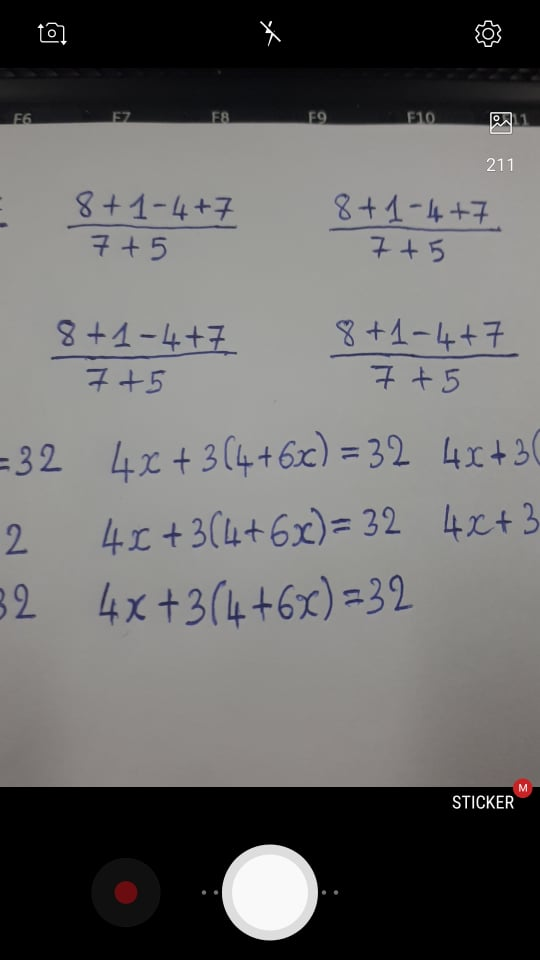 F6 F7 F8 F9 F10 F11
211
8+1-4+7 8+1-4+7
7+5 7+5
8+1-4+7 8+1-4+7
7+5 7+5
=32 4x+3(4+6x)=32 4x+3(
2 4x+3(4+6x)=32 4x+3
32 4x+3(4+6x)=32
STICKER M